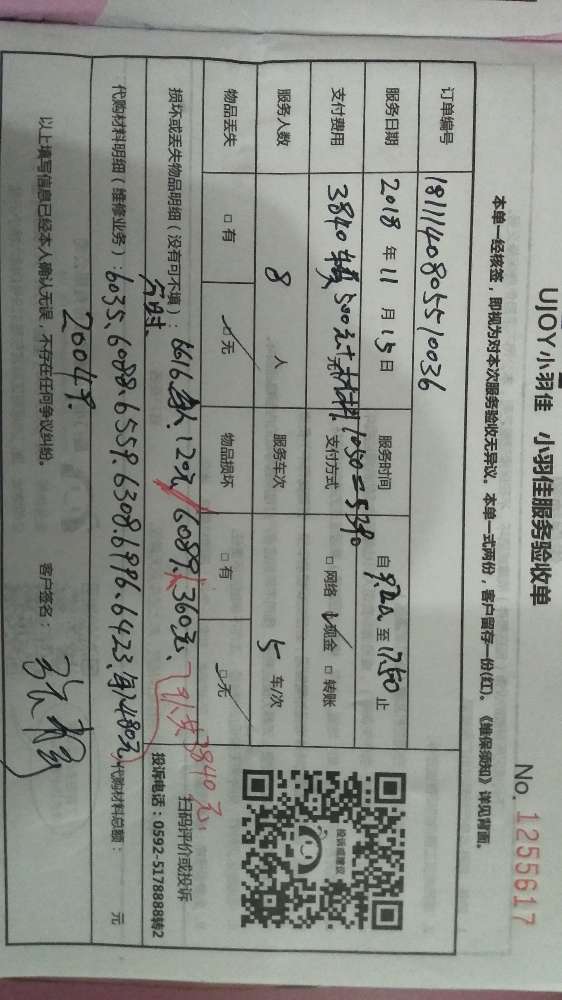 UJOY小羽佳 小羽佳服务验收单
No. 1255617
本单一经核签，即视为对本次服务验收无异议。本单一式两份，客户留存一份(红)。《维保须知》详见背面。
订单编号 1811140805510036
服务日期 2018 年 11 月 15 日 服务时间 自 至 17.50 止
支付费用 3840 500元+材料1050=5390 元 支付方式 □ 网络 ☑ 现金 □ 转账
服务人数 8 人 服务车次 5 车/次
物品丢失 □ 有 ☑ 无 物品损坏 □ 有 ☑ 无
投诉或建议
扫码评价或投诉
投诉电话：0592-5178888转2
损坏或丢失物品明细（没有可不填）： 6616 120元 6089. 360元、 3840元.
代购材料明细（维修业务）： 6035、6088、6559、6308、6996、6423、 480元 代购材料总额： 元
2004.
以上填写信息已经本人确认无误，不存在任何争议纠纷。 客户签名：